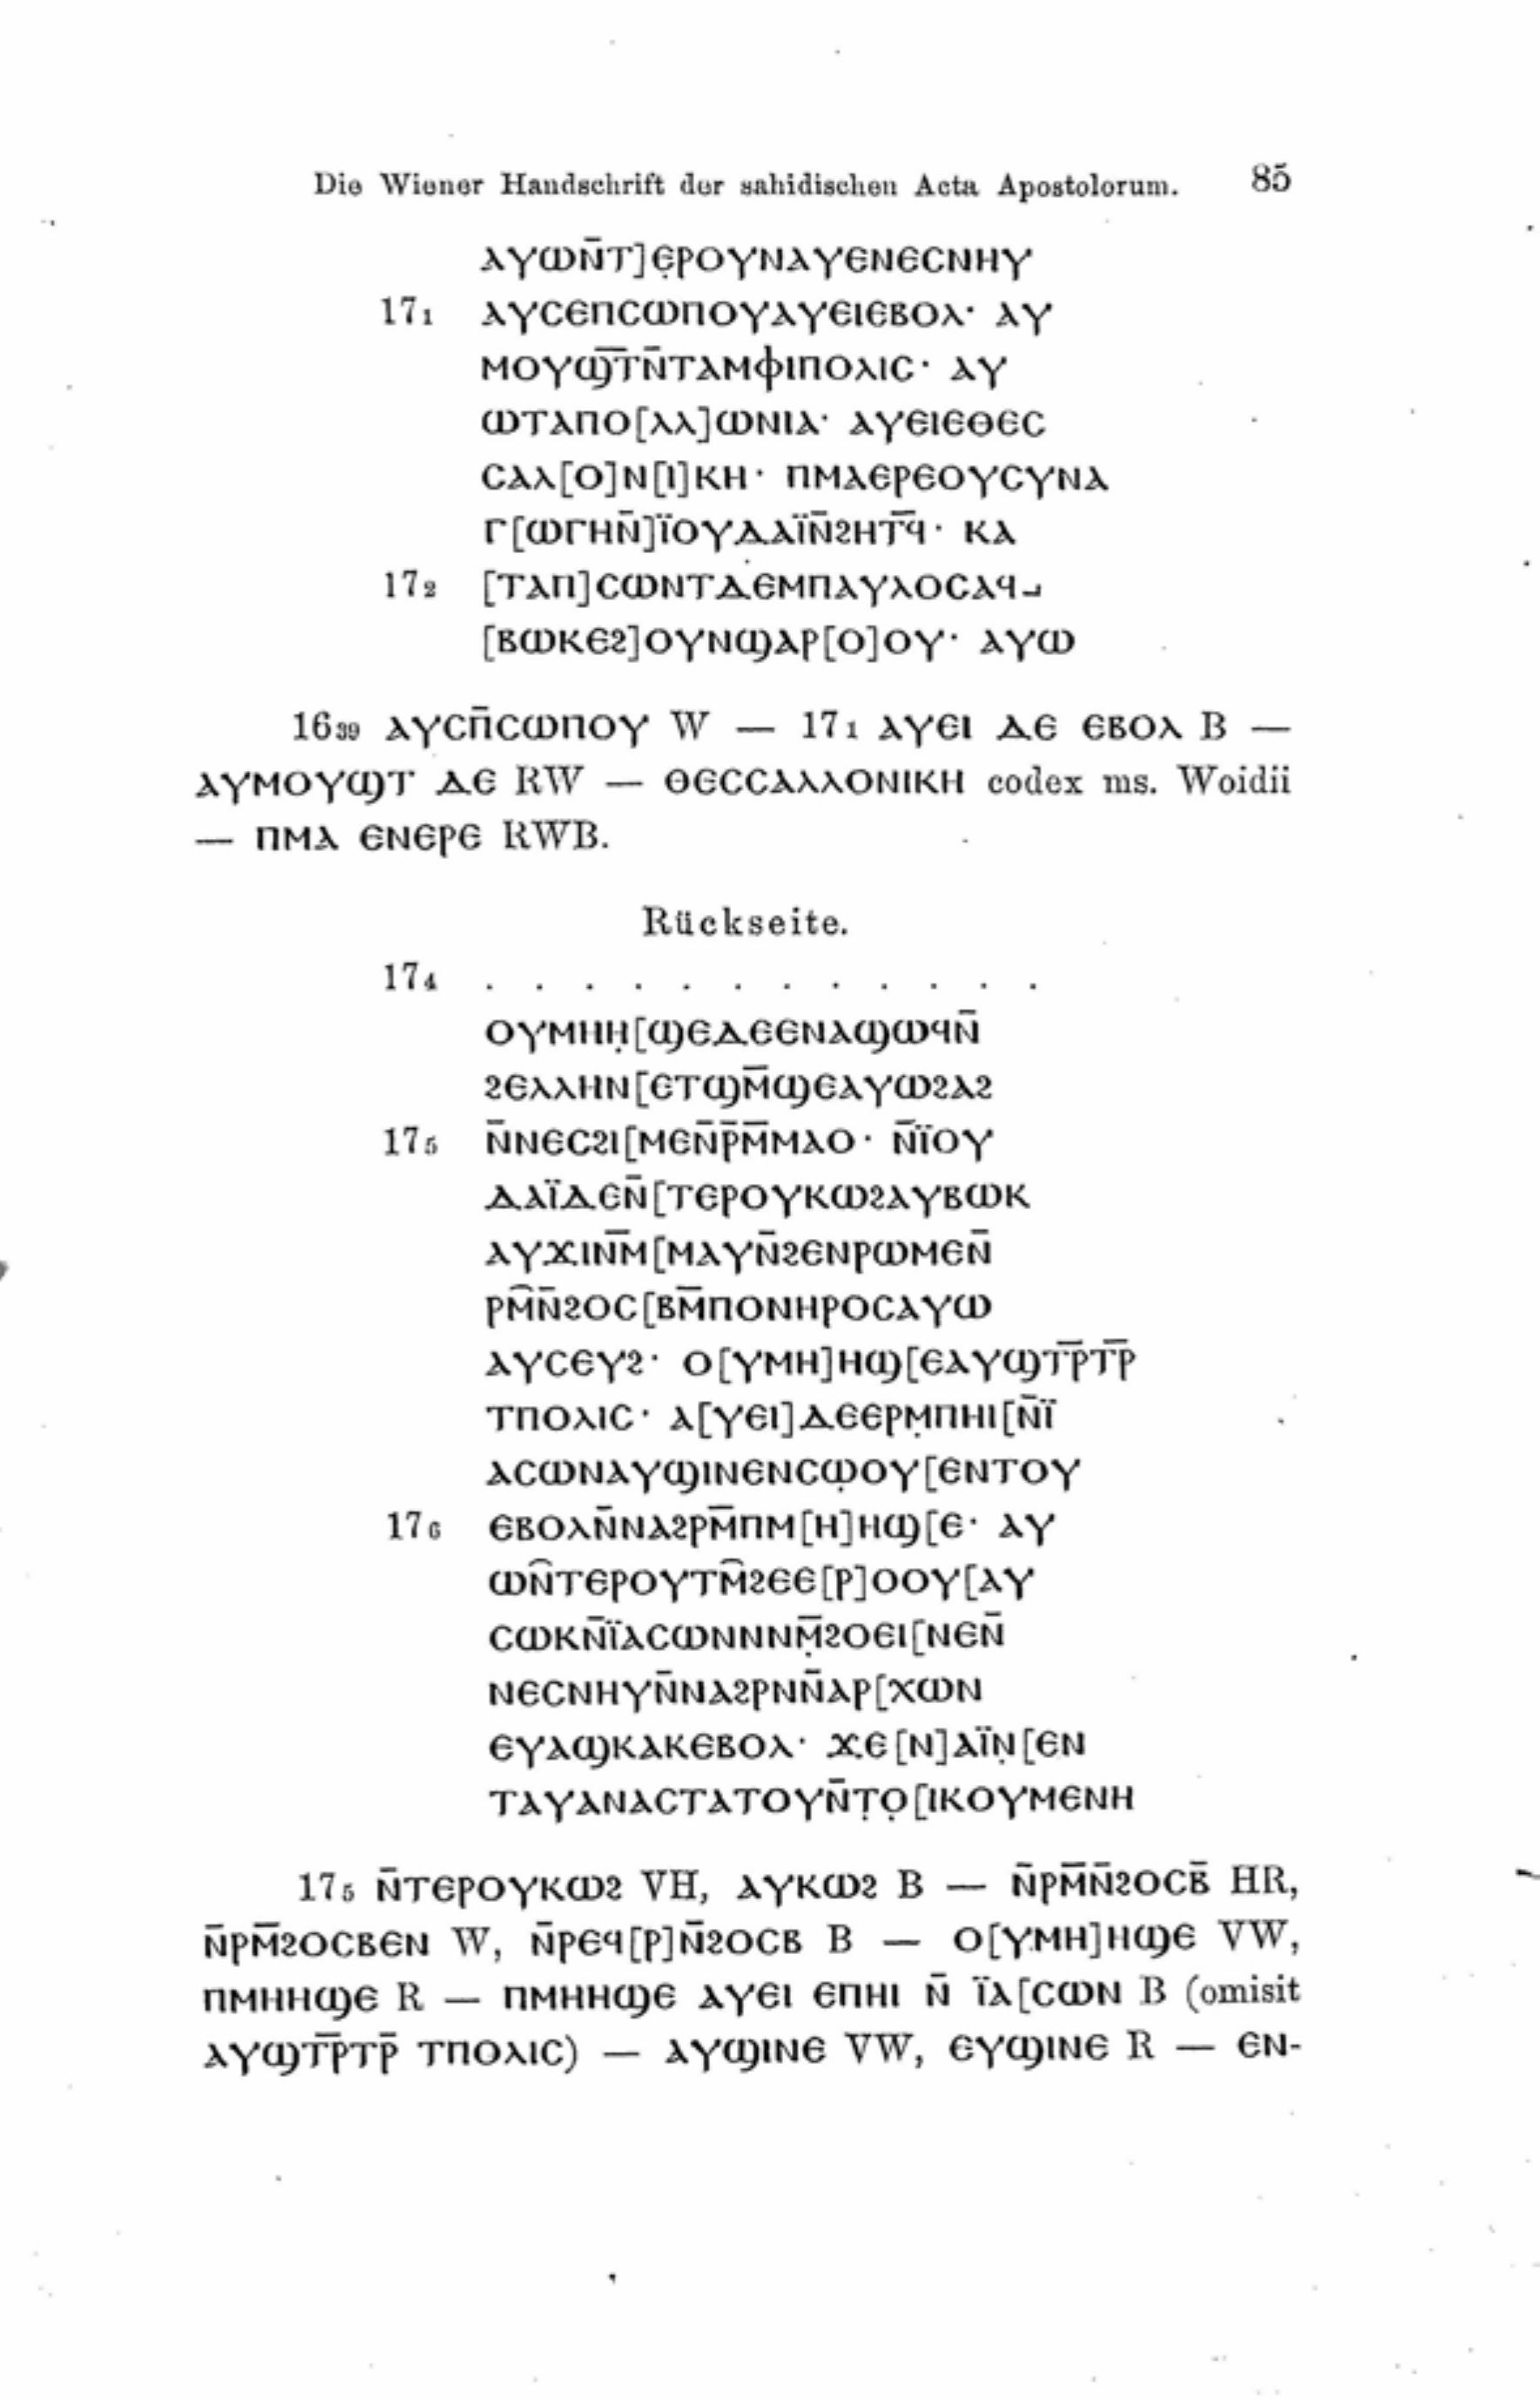 Die Wiener Handschrift der sahidischen Acta Apostolorum. 85
ⲁⲩⲱⲛ̄ⲧ]ⲉ̣ⲣⲟⲩⲛⲁⲩⲉⲛⲉⲥⲛⲏⲩ
17₁ ⲁⲩⲥⲉⲡⲥⲱⲡⲟⲩⲁⲩⲉⲓⲉⲃⲟⲗ· ⲁⲩ
ⲙⲟⲩϣ̄ⲧ̄ⲛ̄ⲧⲁⲙⲫⲓⲡⲟⲗⲓⲥ· ⲁⲩ
ⲱⲧⲁⲡⲟ[ⲗⲗ]ⲱⲛⲓⲁ· ⲁⲩⲉⲓⲉⲑⲉⲥ
ⲥⲁⲗ[ⲟ]ⲛ[ⲓ]ⲕⲏ· ⲡⲙⲁⲉⲣⲉⲟⲩⲥⲩⲛⲁ
ⲅ[ⲱⲅⲏⲛ̄]ⲓ̈ⲟⲩⲇⲁⲓ̈ⲛ̄ϩⲏⲧ̄ϥ̄· ⲕⲁ
17₂ [ⲧⲁⲡ]ⲥⲱⲛⲧⲇⲉⲙⲡⲁⲩⲗⲟⲥⲁϥ⳼
[ⲃⲱⲕⲉϩ]ⲟⲩⲛϣⲁⲣ[ⲟ]ⲟⲩ· ⲁⲩⲱ
16₃₉ ⲁⲩⲥⲡ̄ⲥⲱⲡⲟⲩ W — 17₁ ⲁⲩⲉⲓ ⲇⲉ ⲉⲃⲟⲗ B —
ⲁⲩⲙⲟⲩϣⲧ ⲇⲉ RW — ⲑⲉⲥⲥⲁⲗⲗⲟⲛⲓⲕⲏ codex ms. Woidii
— ⲡⲙⲁ ⲉⲛⲉⲣⲉ RWB.
Rückseite.
17₄ . . . . . . . . . . . .
ⲟⲩⲙⲏⲏ̣[ϣⲉⲇⲉⲉⲛⲁϣⲱϥⲛ̄
ϩⲉⲗⲗⲏⲛ[ⲉⲧϣⲙ̄ϣⲉⲁⲩⲱϩⲁϩ
17₅ ⲛ̄ⲛⲉⲥϩⲓ[ⲙⲉⲛ̄ⲣ̄ⲙ̄ⲙⲁⲟ· ⲛ̄ⲓ̈ⲟⲩ
ⲇⲁⲓ̈ⲇⲉⲛ̄[ⲧⲉⲣⲟⲩⲕⲱϩⲁⲩⲃⲱⲕ
ⲁⲩϫⲓⲛ̄ⲙ̄[ⲙⲁⲩⲛ̄ϩⲉⲛⲣⲱⲙⲉⲛ̄
ⲣⲙ̂ⲛ̄ϩⲟⲥ[ⲃⲙ̄ⲡⲟⲛⲏⲣⲟⲥⲁⲩⲱ
ⲁⲩⲥⲉⲩϩ· ⲟ[ⲩⲙⲏ]ⲏϣ[ⲉⲁⲩϣⲧ̄ⲣ̄ⲧ̄ⲣ̄
ⲧⲡⲟⲗⲓⲥ· ⲁ[ⲩⲉⲓ]ⲇⲉⲉⲣⲙ̣ⲡⲏⲓ[ⲛ̄ⲓ̈
ⲁⲥⲱⲛⲁⲩϣⲓⲛⲉⲛⲥⲱ̣ⲟⲩ[ⲉⲛⲧⲟⲩ
17₆ ⲉⲃⲟⲗⲛ̄ⲛⲁϩⲣⲙ̄ⲡⲙ[ⲏ]ⲏϣ[ⲉ· ⲁⲩ
ⲱⲛ̂ⲧⲉⲣⲟⲩⲧⲙ̂ϩⲉⲉ[ⲣ]ⲟⲟⲩ[ⲁⲩ
ⲥⲱⲕⲛ̄ⲓ̈ⲁⲥⲱⲛⲛⲛⲙ̣̄ϩⲟⲉⲓ[ⲛⲉⲛ̄
ⲛⲉⲥⲛⲏⲩⲛ̄ⲛⲁϩⲣⲛⲛ̄ⲁⲣ[ⲭⲱⲛ
ⲉⲩⲁϣⲕⲁⲕⲉⲃⲟⲗ· ϫⲉ[ⲛ]ⲁⲓ̈ⲛ̣[ⲉⲛ
ⲧⲁⲩⲁⲛⲁⲥⲧⲁⲧⲟⲩⲛ̄ⲧ̣ⲟ̣[ⲓⲕⲟⲩⲙⲉⲛⲏ
17₅ ⲛ̄ⲧⲉⲣⲟⲩⲕⲱϩ VH, ⲁⲩⲕⲱϩ B — ⲛ̄ⲣⲙ̄ⲛ̄ϩⲟⲥⲃ̄ HR,
ⲛ̄ⲣⲙ̄ϩⲟⲥⲃⲉⲛ W, ⲛ̄ⲣⲉϥ[ⲣ]ⲛ̄ϩⲟⲥⲃ B — ⲟ[ⲩⲙⲏ]ⲏϣⲉ VW,
ⲡⲙⲏⲏϣⲉ R — ⲡⲙⲏⲏϣⲉ ⲁⲩⲉⲓ ⲉⲡⲏⲓ ⲛ̄ ⲓ̈ⲁ[ⲥⲱⲛ B (omisit
ⲁⲩϣⲧ̄ⲣ̄ⲧⲣ̄ ⲧⲡⲟⲗⲓⲥ) — ⲁⲩϣⲓⲛⲉ VW, ⲉⲩϣⲓⲛⲉ R — ⲉⲛ-